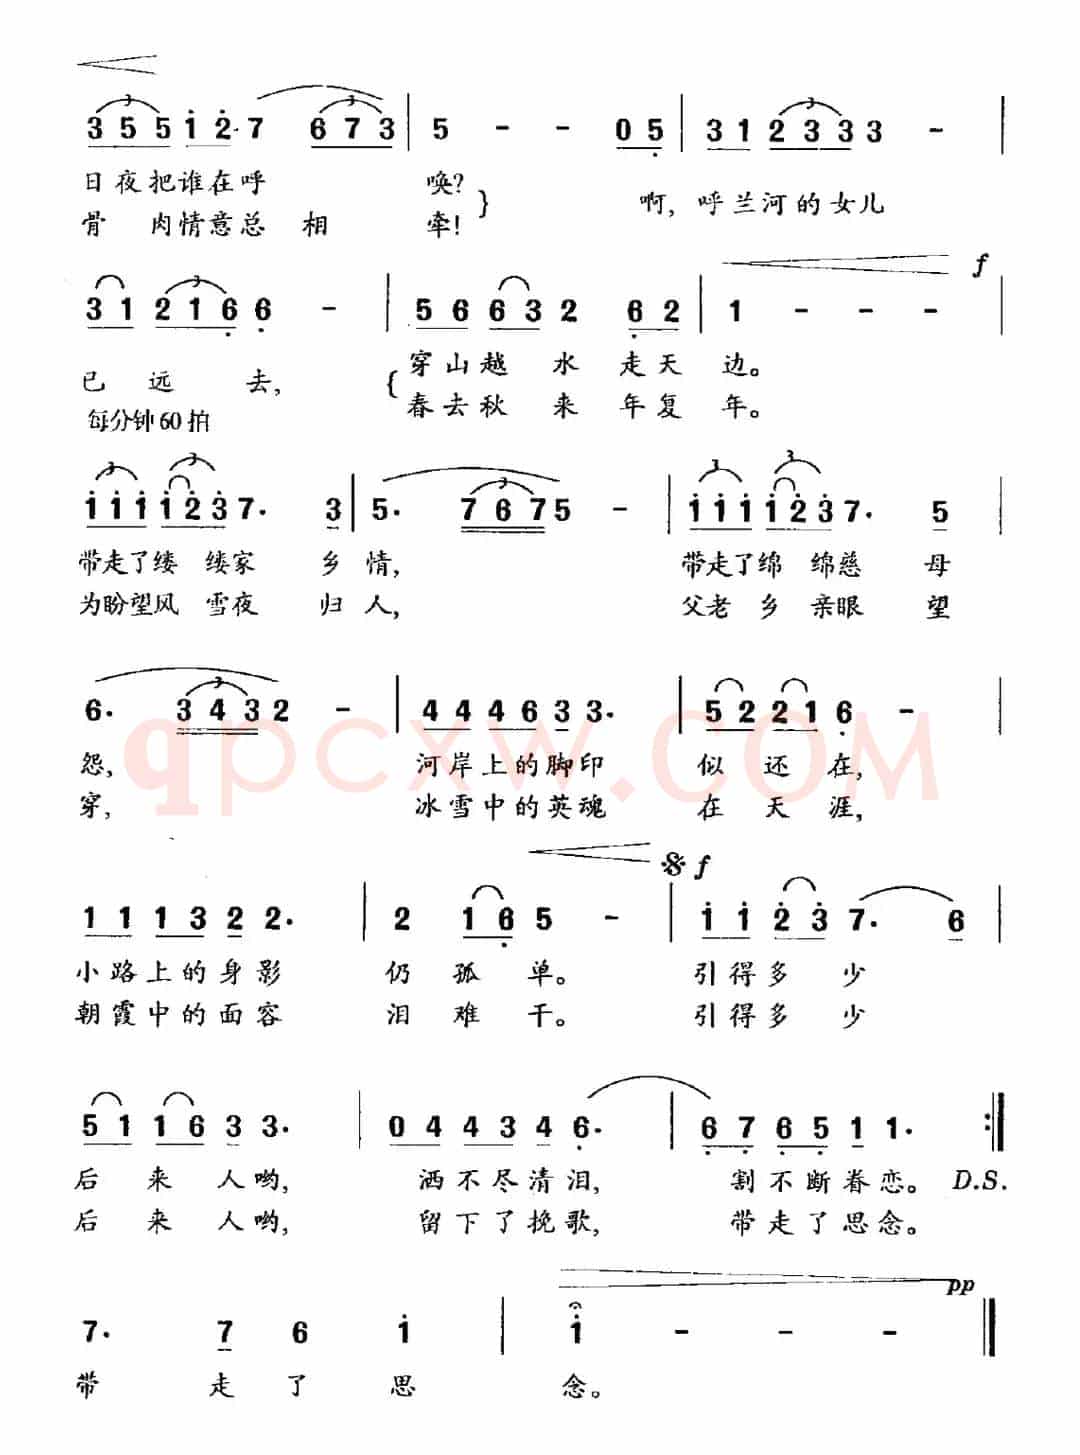 3 5 5 1 2· 7 6 7 3 | 5 - - 0 5 | 3 1 2 3 3 3 - |
日夜把谁在呼 唤? 啊, 呼兰河的女儿
骨 肉情意总 相 牵!
f
3 1 2 1 6 6 - | 5 6 6 3 2 6 2 | 1 - - - |
已 远 去, 穿山越 水 走天 边。
每分钟60拍 春去秋 来 年复 年。
1 1 1 1 2 3 7· 3 | 5· 7 6 7 5 - | 1 1 1 1 2 3 7· 5 |
带走了缕 缕家 乡 情, 带走了绵 绵慈 母
为盼望风 雪夜 归 人, 父老 乡 亲眼 望
6· 3 4 3 2 - | 4 4 4 6 3 3· | 5 2 2 1 6 - |
怨, 河岸上的脚印 似 还 在,
穿, 冰雪中的英魂 在 天 涯,
qpcxw.COM
f
1 1 1 3 2 2· | 2 1 6 5 - | 1 1 2 3 7· 6 |
小路上的身影 仍 孤 单。 引得多 少
朝霞中的面容 泪 难 干。 引得多 少
5 1 1 6 3 3· | 0 4 4 3 4 6· | 6 7 6 5 1 1· :|
后 来 人哟, 洒不尽清泪, 割不断眷恋。 D.S.
后 来 人哟, 留下了挽歌, 带走了思念。
pp
7· 7 6 1 | 1 - - - |
带 走 了 思 念。